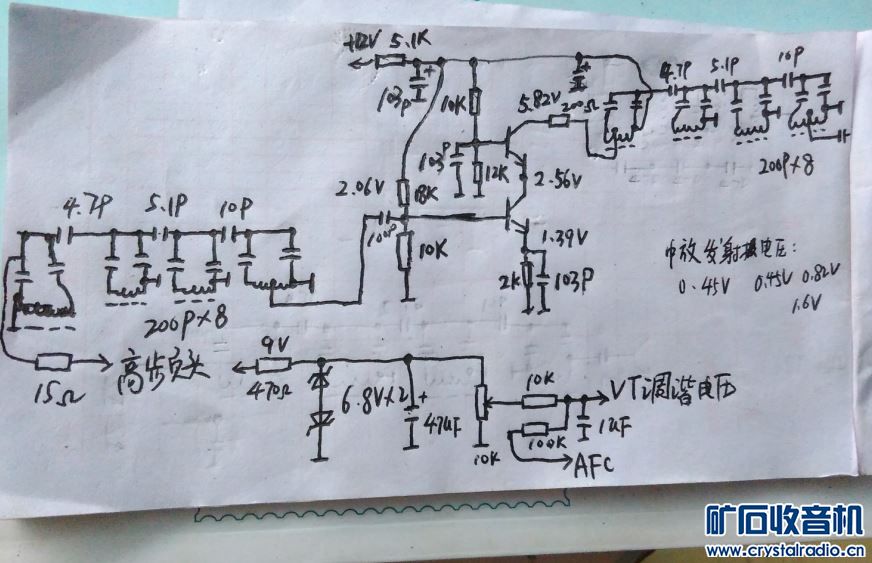 +12V 5.1K
103P
10K
5.82V
200Ω
4.7P 5.1P 10P
200P×8
103P
12K
2.56V
2.06V
18K
100P
10K
1.39V
2K
103P
中放发射极电压:
0.45V 0.45V 0.82V
1.6V
4.7P 5.1P 10P
200P×8
15Ω
高频头
9V
470Ω
6.8V×2
47uF
10K
10K
100K
1uF
VT调谐电压
AFC
矿石收音机
www.crystalradio.cn